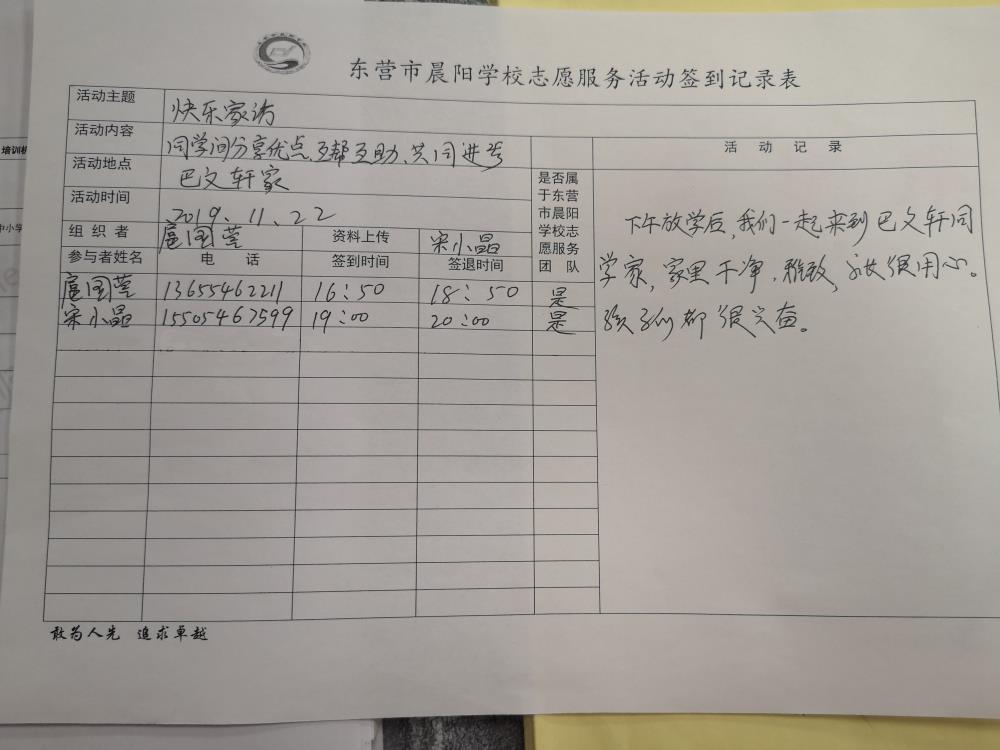 东营市晨阳学校志愿服务活动签到记录表
活动主题 快乐家访
活动内容 同学间分享优点、互帮互助、共同进步
活动地点 巴文轩家
活动时间 2019、11、22
组织者 扈国莹 资料上传 宋小晶
参与者姓名 电话 签到时间 签退时间
是否属
于东营
市晨阳
学校志
愿服务
团队
扈国莹 13655462211 16:50 18:50 是
宋小晶 15505467599 19:00 20:00 是
活动记录
下午放学后,我们一起来到巴文轩同
学家,家里干净,雅致,很用心。
孩子们都很兴奋。
敢为人先 追求卓越
培训机
中小学